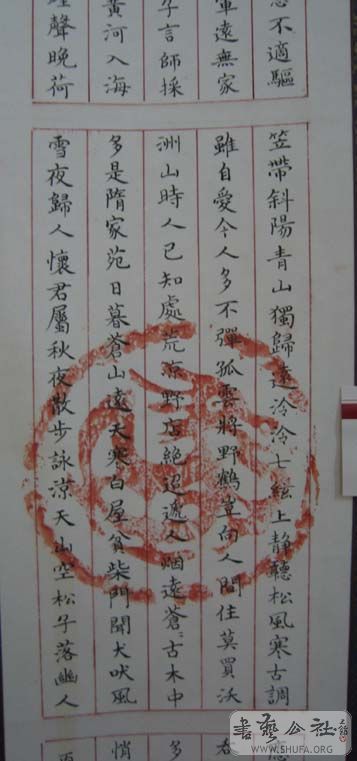 意不適驅
軍遠無家
子言師採
黃河入海
聲晚荷
笠帶斜陽青山獨歸遠泠泠七絃上靜聽松風寒古調
雖自愛今人多不彈孤雲將野鶴豈向人間住莫買沃
洲山時人已知處荒涼野店絕迢遞人烟遠蒼〻古木中
多是隋家苑日暮蒼山遠天寒白屋貧柴門聞犬吠風
雪夜歸人懷君屬秋夜散步詠涼天山空松子落幽人
應
多
悄
書藝公社
WWW.SHUFA.ORG